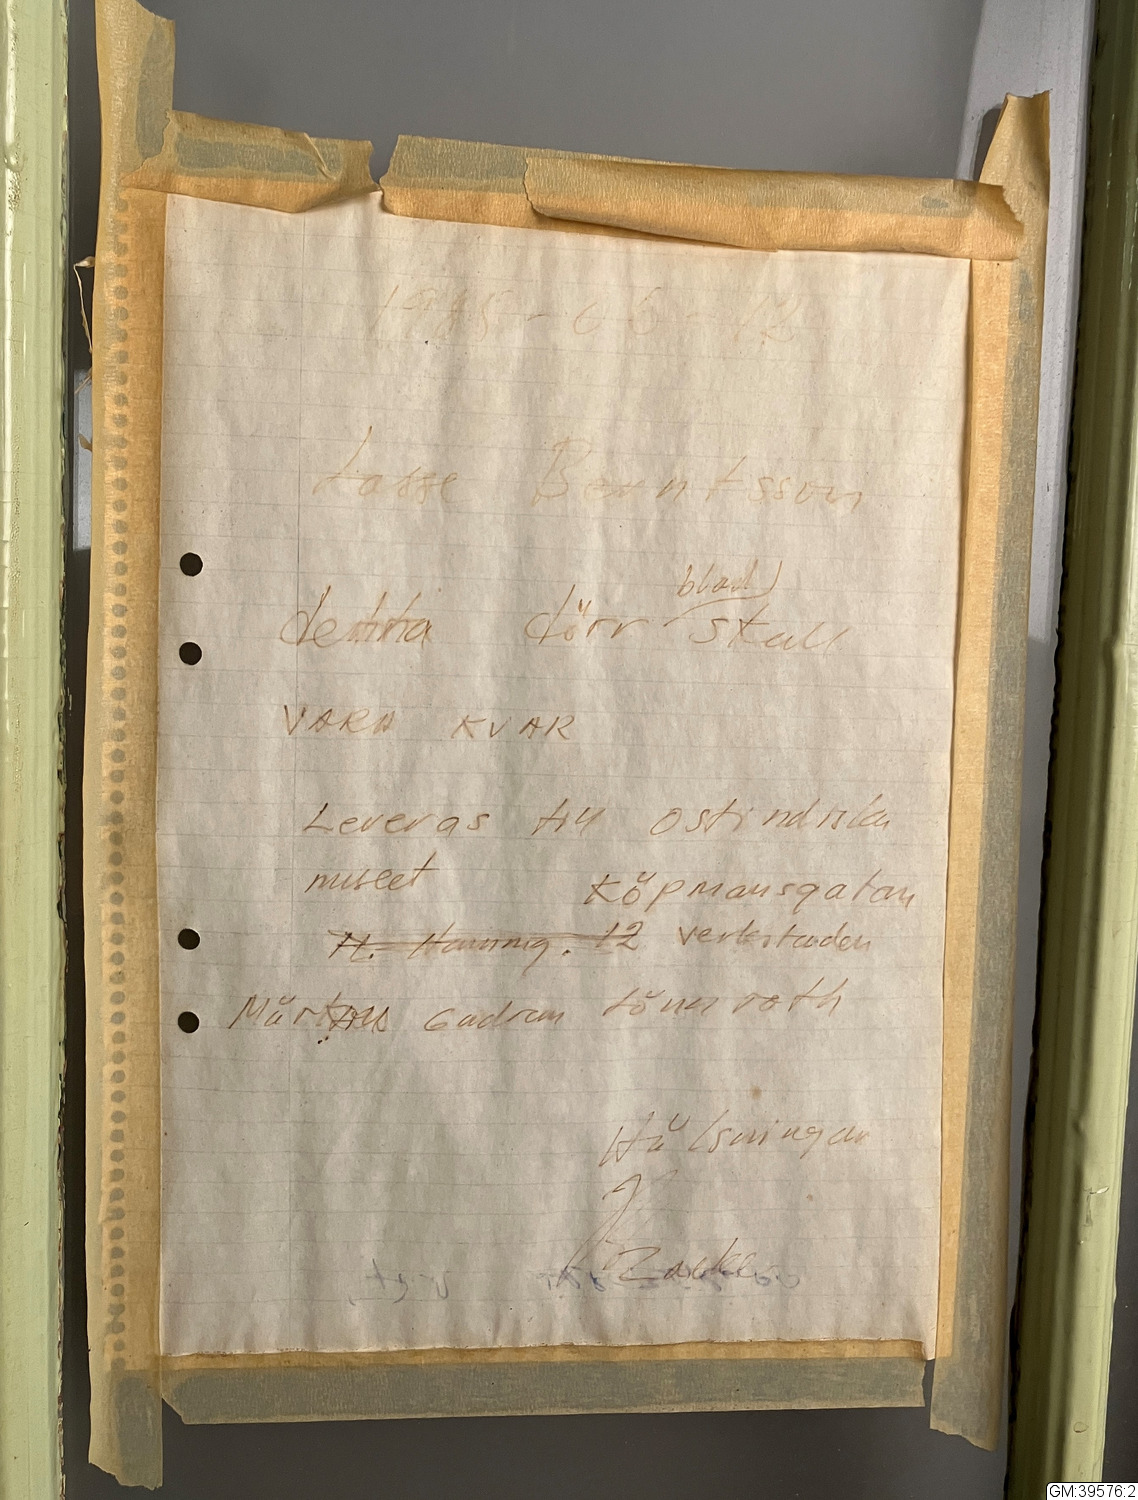 1985-05-12
Lasse Berntsson
detta dörr blad skall
VARA KVAR
Leveras till ostindiska
museet Köpmansgatan
H. Hamng. 12 verkstaden
Gudrun Lönnroth
Hälsningar
J
GM:39576:2